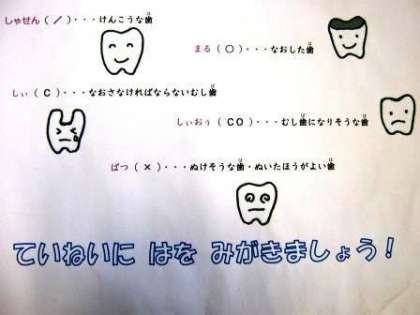 しゃせん（／）・・・けんこうな歯
まる（○）・・・なおした歯
しぃ（C）・・・なおさなければならないむし歯
しぃおぅ（CO）・・・むし歯になりそうな歯
ばつ（×）・・・ぬけそうな歯・ぬいたほうがよい歯
ていねいに はを みがきましょう！